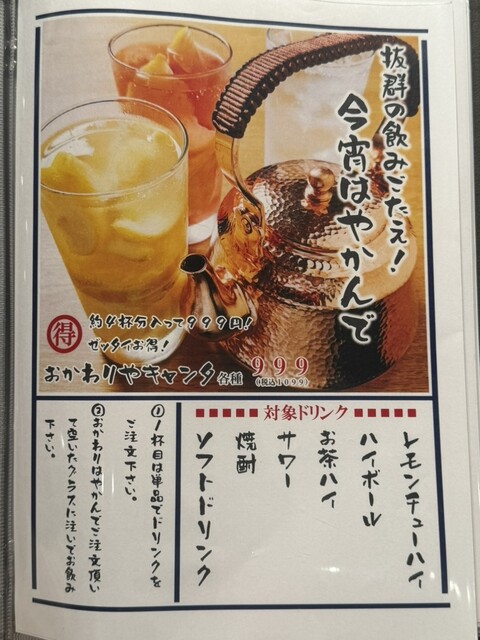 抜群の飲みごたえ!
今宵はやかんで
得
約4杯分入って999円!
ゼッタイお得!
おかわりやキャンタ各種 999
(税込1099)
対象ドリンク
レモンチューハイ
ハイボール
お茶ハイ
サワー
焼酎
ソフトドリンク
①1杯目は単品でドリンクを
ご注文下さい。
②おかわりはやかんでご注文頂い
て空いたグラスに注いでお飲み
下さい。